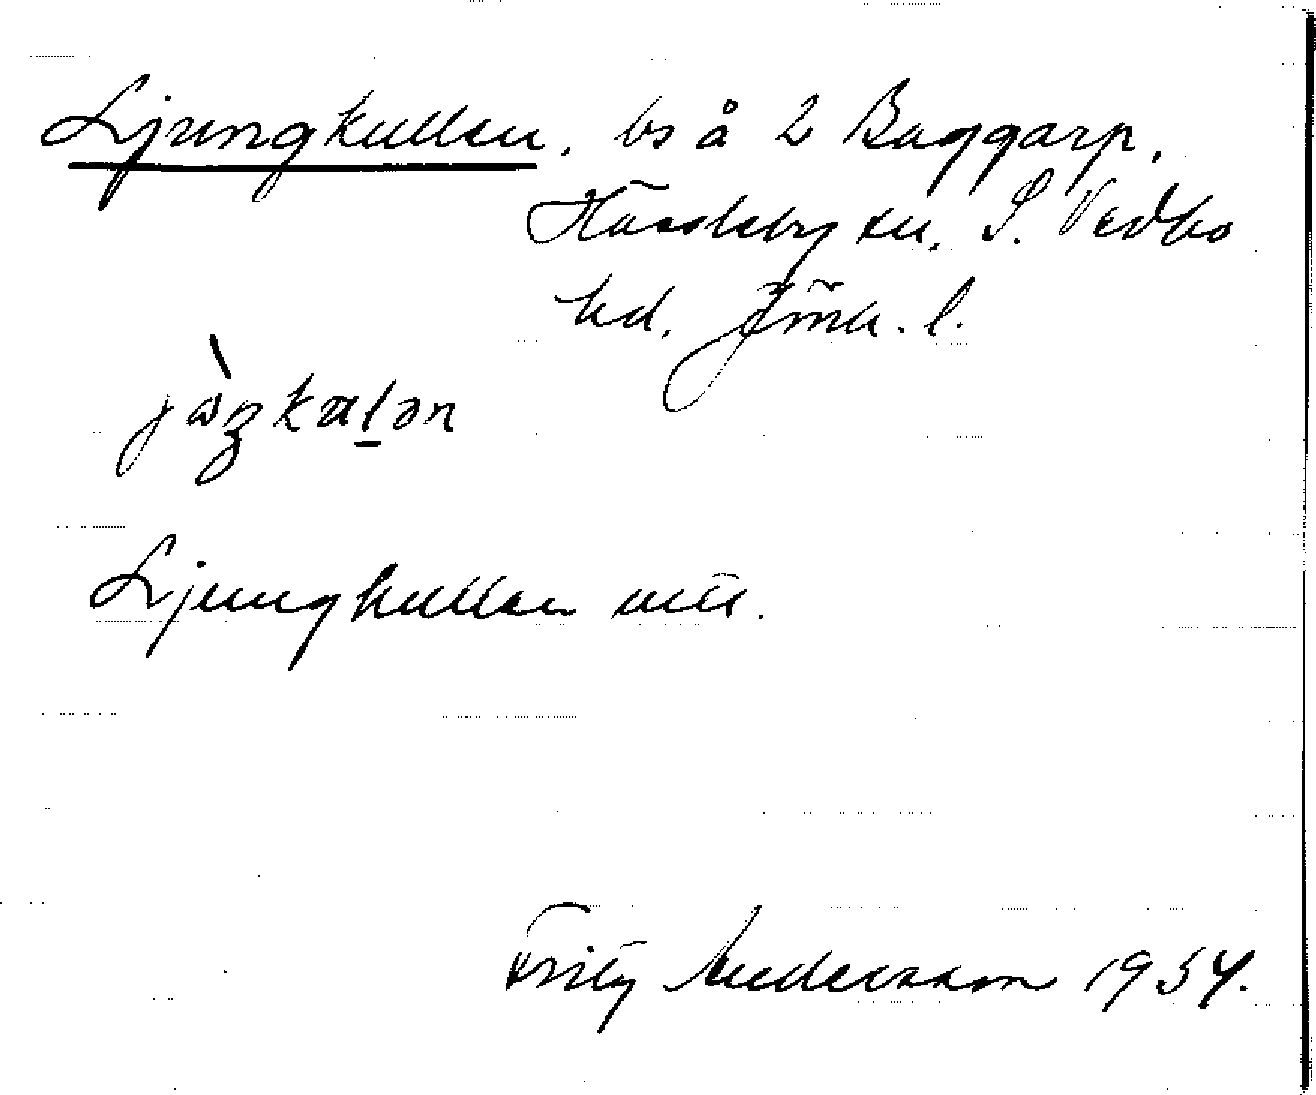 Ljungkullen, bs å 2 Baggarp,
Hässleby sn, S. Vedbo
hd, Jönk. l.
Ljungkullen
Fritz Andersson 1934.